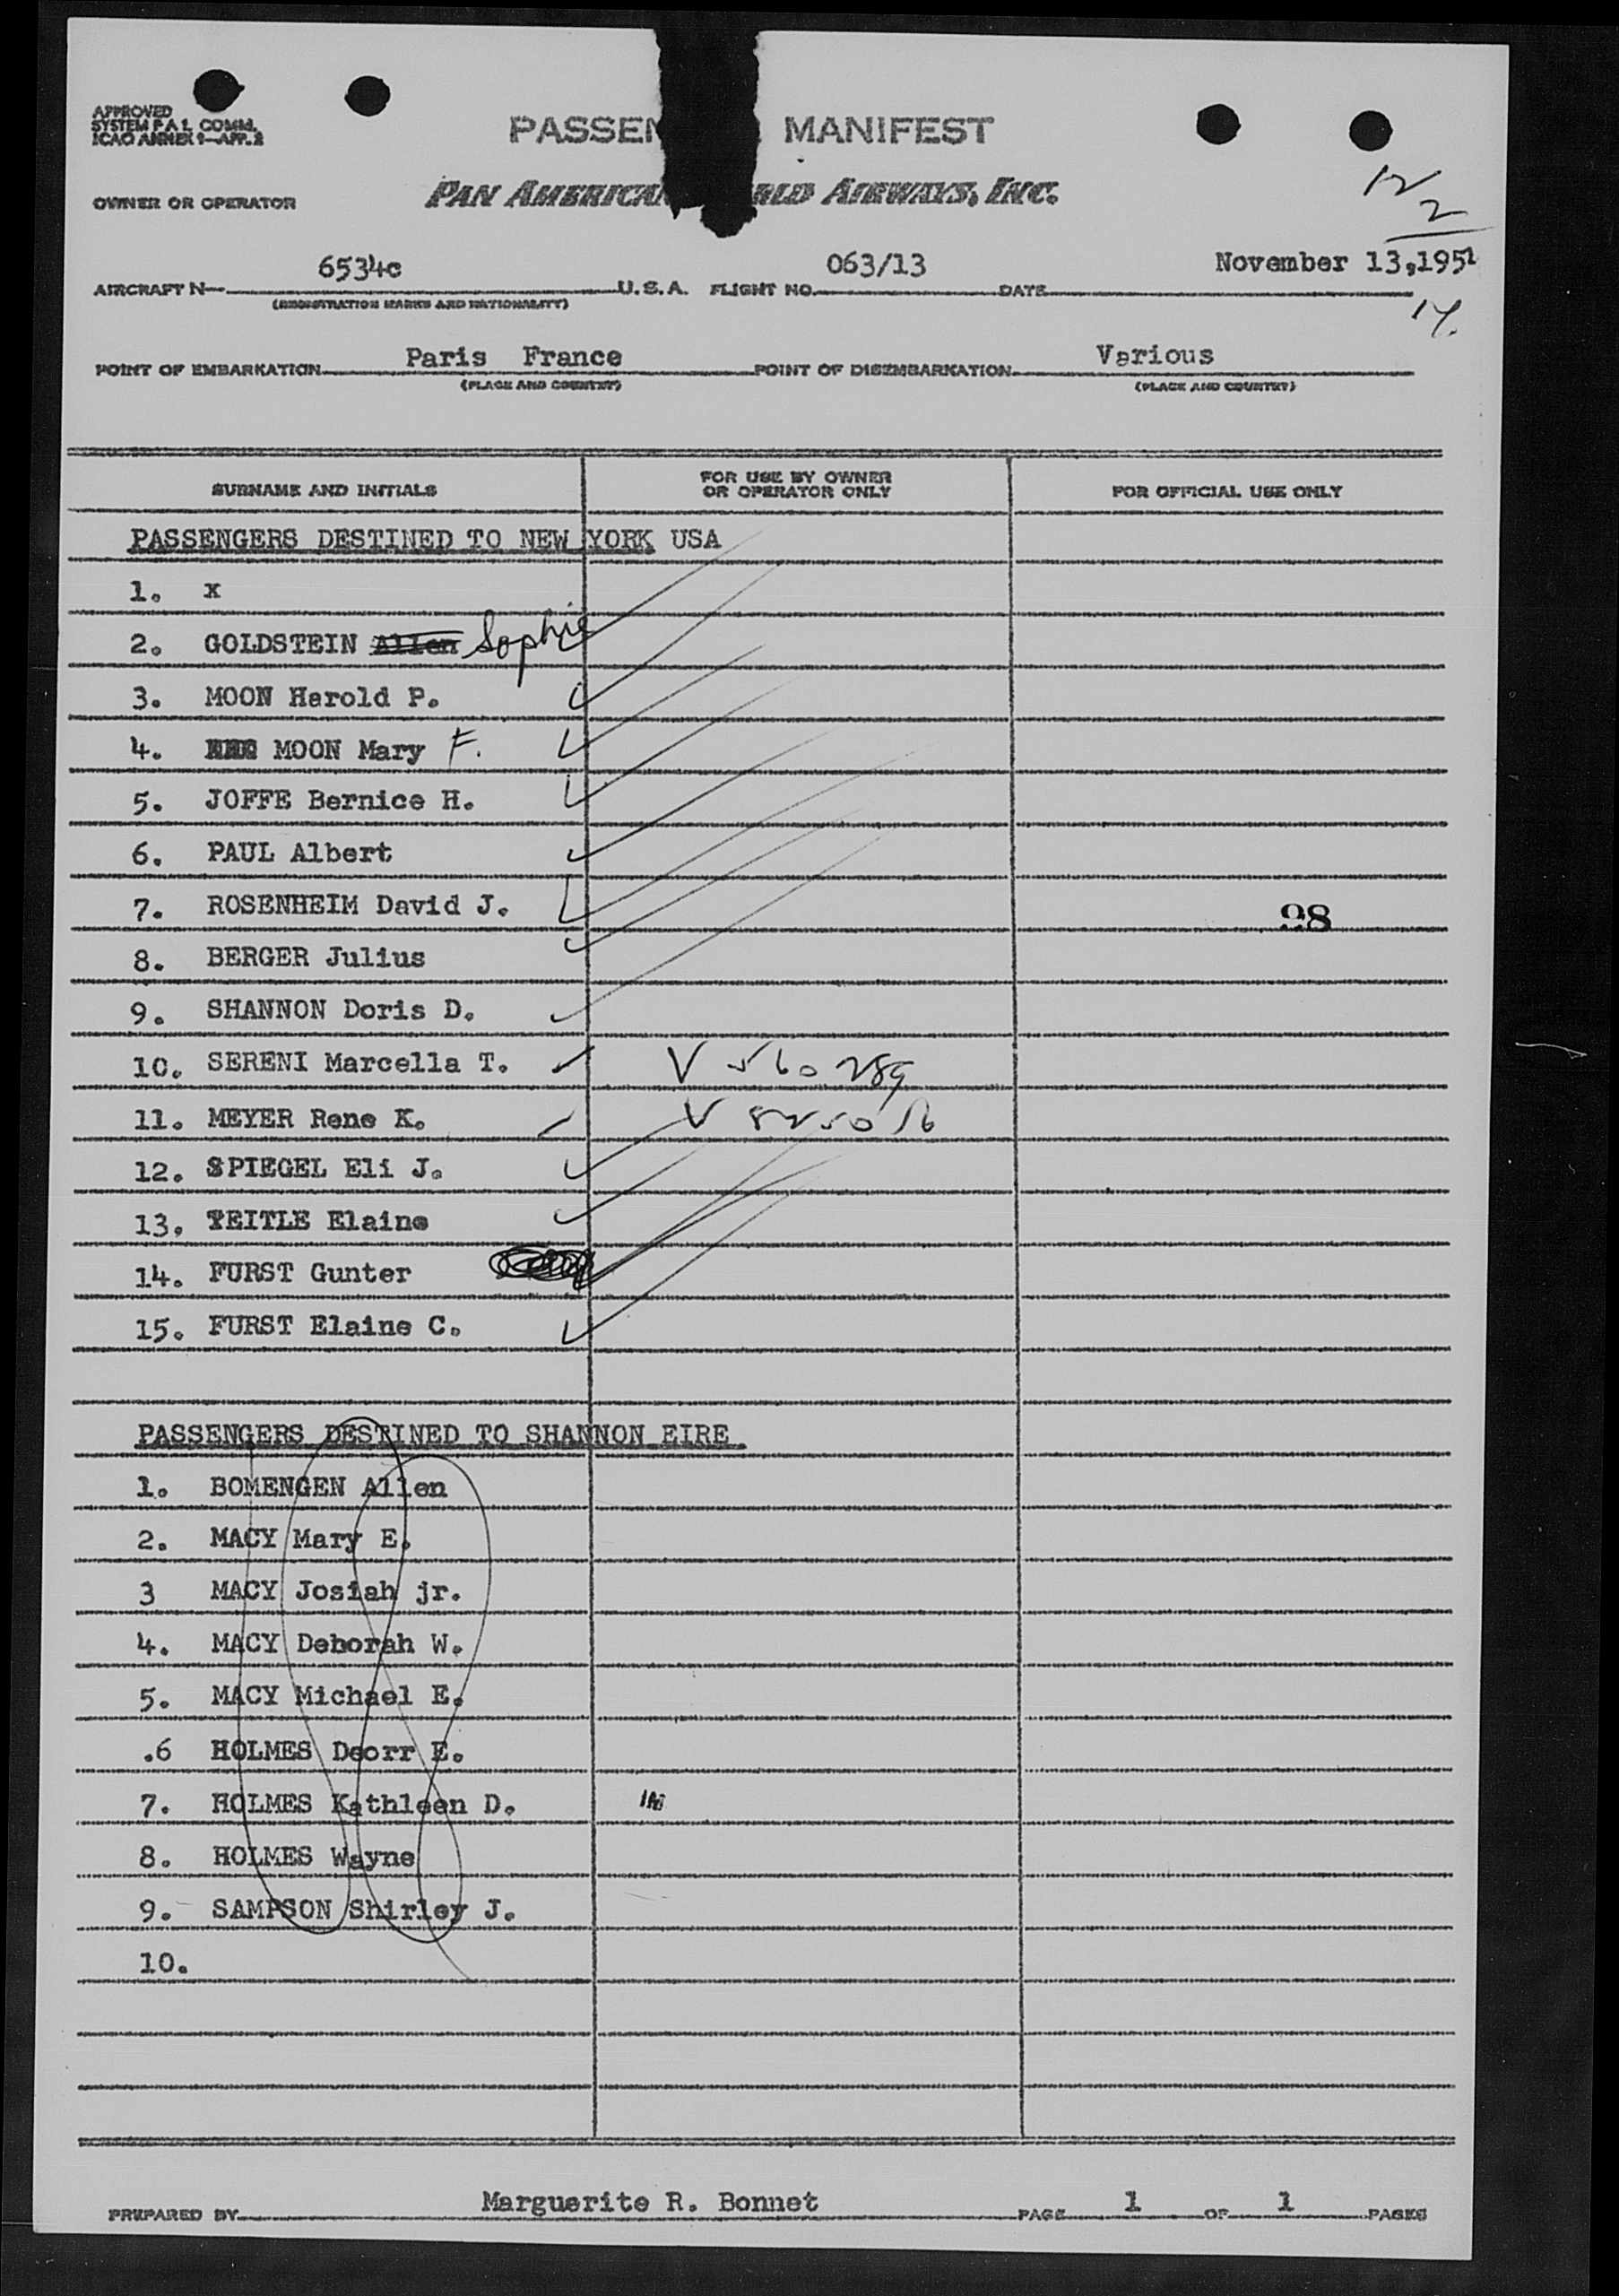 APPROVED
SYSTEM F A L COMM.
ICAO ANNEX 9—APP. 2
PASSEN MANIFEST
OWNER OR OPERATOR PAN AMERICAN RLD AIRWAYS, INC.
12
2
AIRCRAFT N— 6534c U.S.A. FLIGHT NO. 063/13 DATE November 13,1951
(REGISTRATION MARKS AND NATIONALITY)
14.
POINT OF EMBARKATION Paris France POINT OF DISEMBARKATION Various
(PLACE AND COUNTRY) (PLACE AND COUNTRY)
SURNAME AND INITIALS FOR USE BY OWNER OR OPERATOR ONLY FOR OFFICIAL USE ONLY
PASSENGERS DESTINED TO NEW YORK USA
1. x
2. GOLDSTEIN Allen Sophie
3. MOON Harold P.
4. MOON Mary F.
5. JOFFE Bernice H.
6. PAUL Albert
7. ROSENHEIM David J. 98
8. BERGER Julius
9. SHANNON Doris D.
10. SERENI Marcella T. V 560289
11. MEYER Rene K. V
12. SPIEGEL Eli J.
13. TEITLE Elaine
14. FURST Gunter
15. FURST Elaine C.
PASSENGERS DESTINED TO SHANNON EIRE
1. BOMENGEN Allen
2. MACY Mary E.
3 MACY Josiah jr.
4. MACY Deborah W.
5. MACY Michael E.
.6 HOLMES Deorr E.
7. HOLMES Kathleen D.
8. HOLMES Wayne
9. SAMPSON Shirley J.
10.
PREPARED BY Marguerite R. Bonnet PAGE 1 OF 1 PAGES